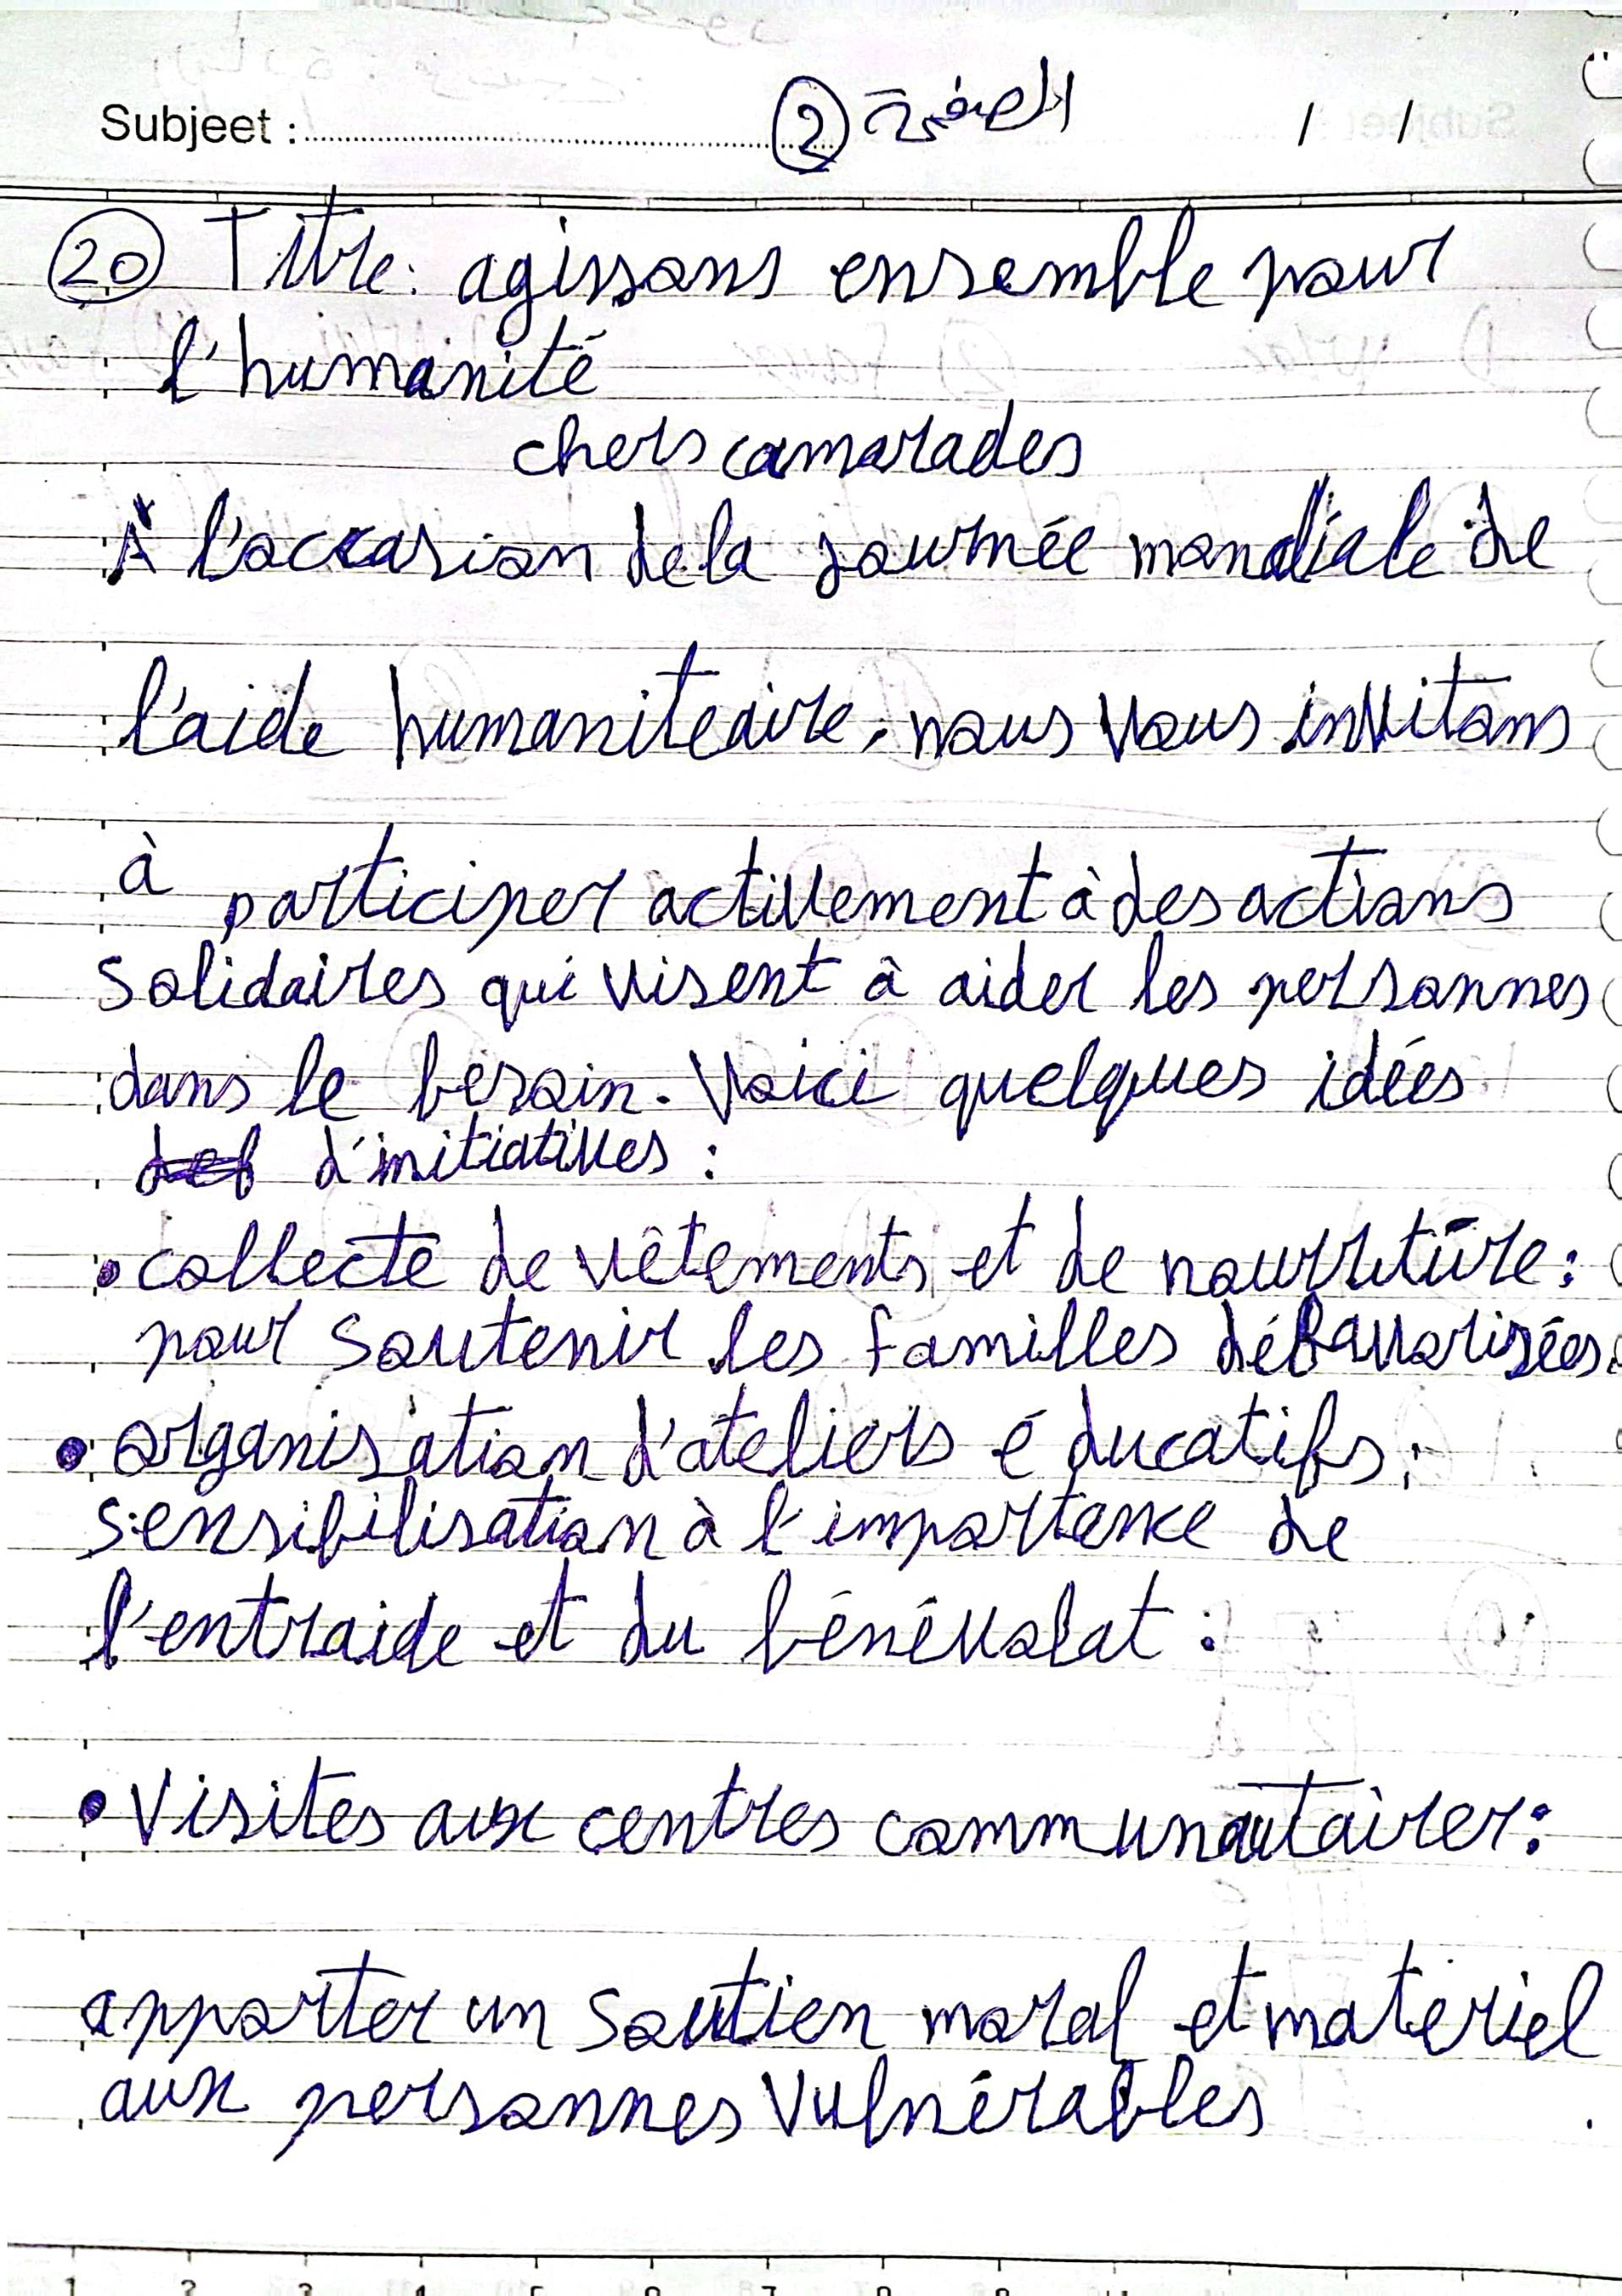 Subjeet : ② الصفحة / /
⑳ Titre: agissons ensemble pour
l'humanité
chers camarades
À l'occasion de la journée mondiale de
l'aide humaniteaire, nous vous invitons
à participer activement à des actions
solidaires qui visent à aider les personnes
dans le besoin. Voici quelques idées
d'initiatives :
• collecte de vêtements et de nourriture :
pour soutenir les familles défavorisées.
• organisation d'ateliers éducatifs,
sensibilisation à l'importance de
l'entraide et du bénévolat :
• Visites aux centres communautairer :
apporter un soutien moral et matériel
aux personnes vulnérables